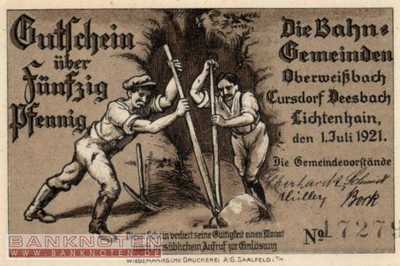 Gutschein
über
Fünfzig
Pfennig
Die Bahn-
Gemeinden
Oberweißbach
Cursdorf Deesbach
Lichtenhain,
den 1. Juli 1921.
Die Gemeindevorstände
Eberhardt, Schmidt
Müller Bock
Dieser Schein verliert seine Gültigkeit einen Monat
Aufruf zur Einlösung
No 17279
BANKNOTEN
WIEDEMANNSCHE DRUCKEREI A.G. SAALFELD